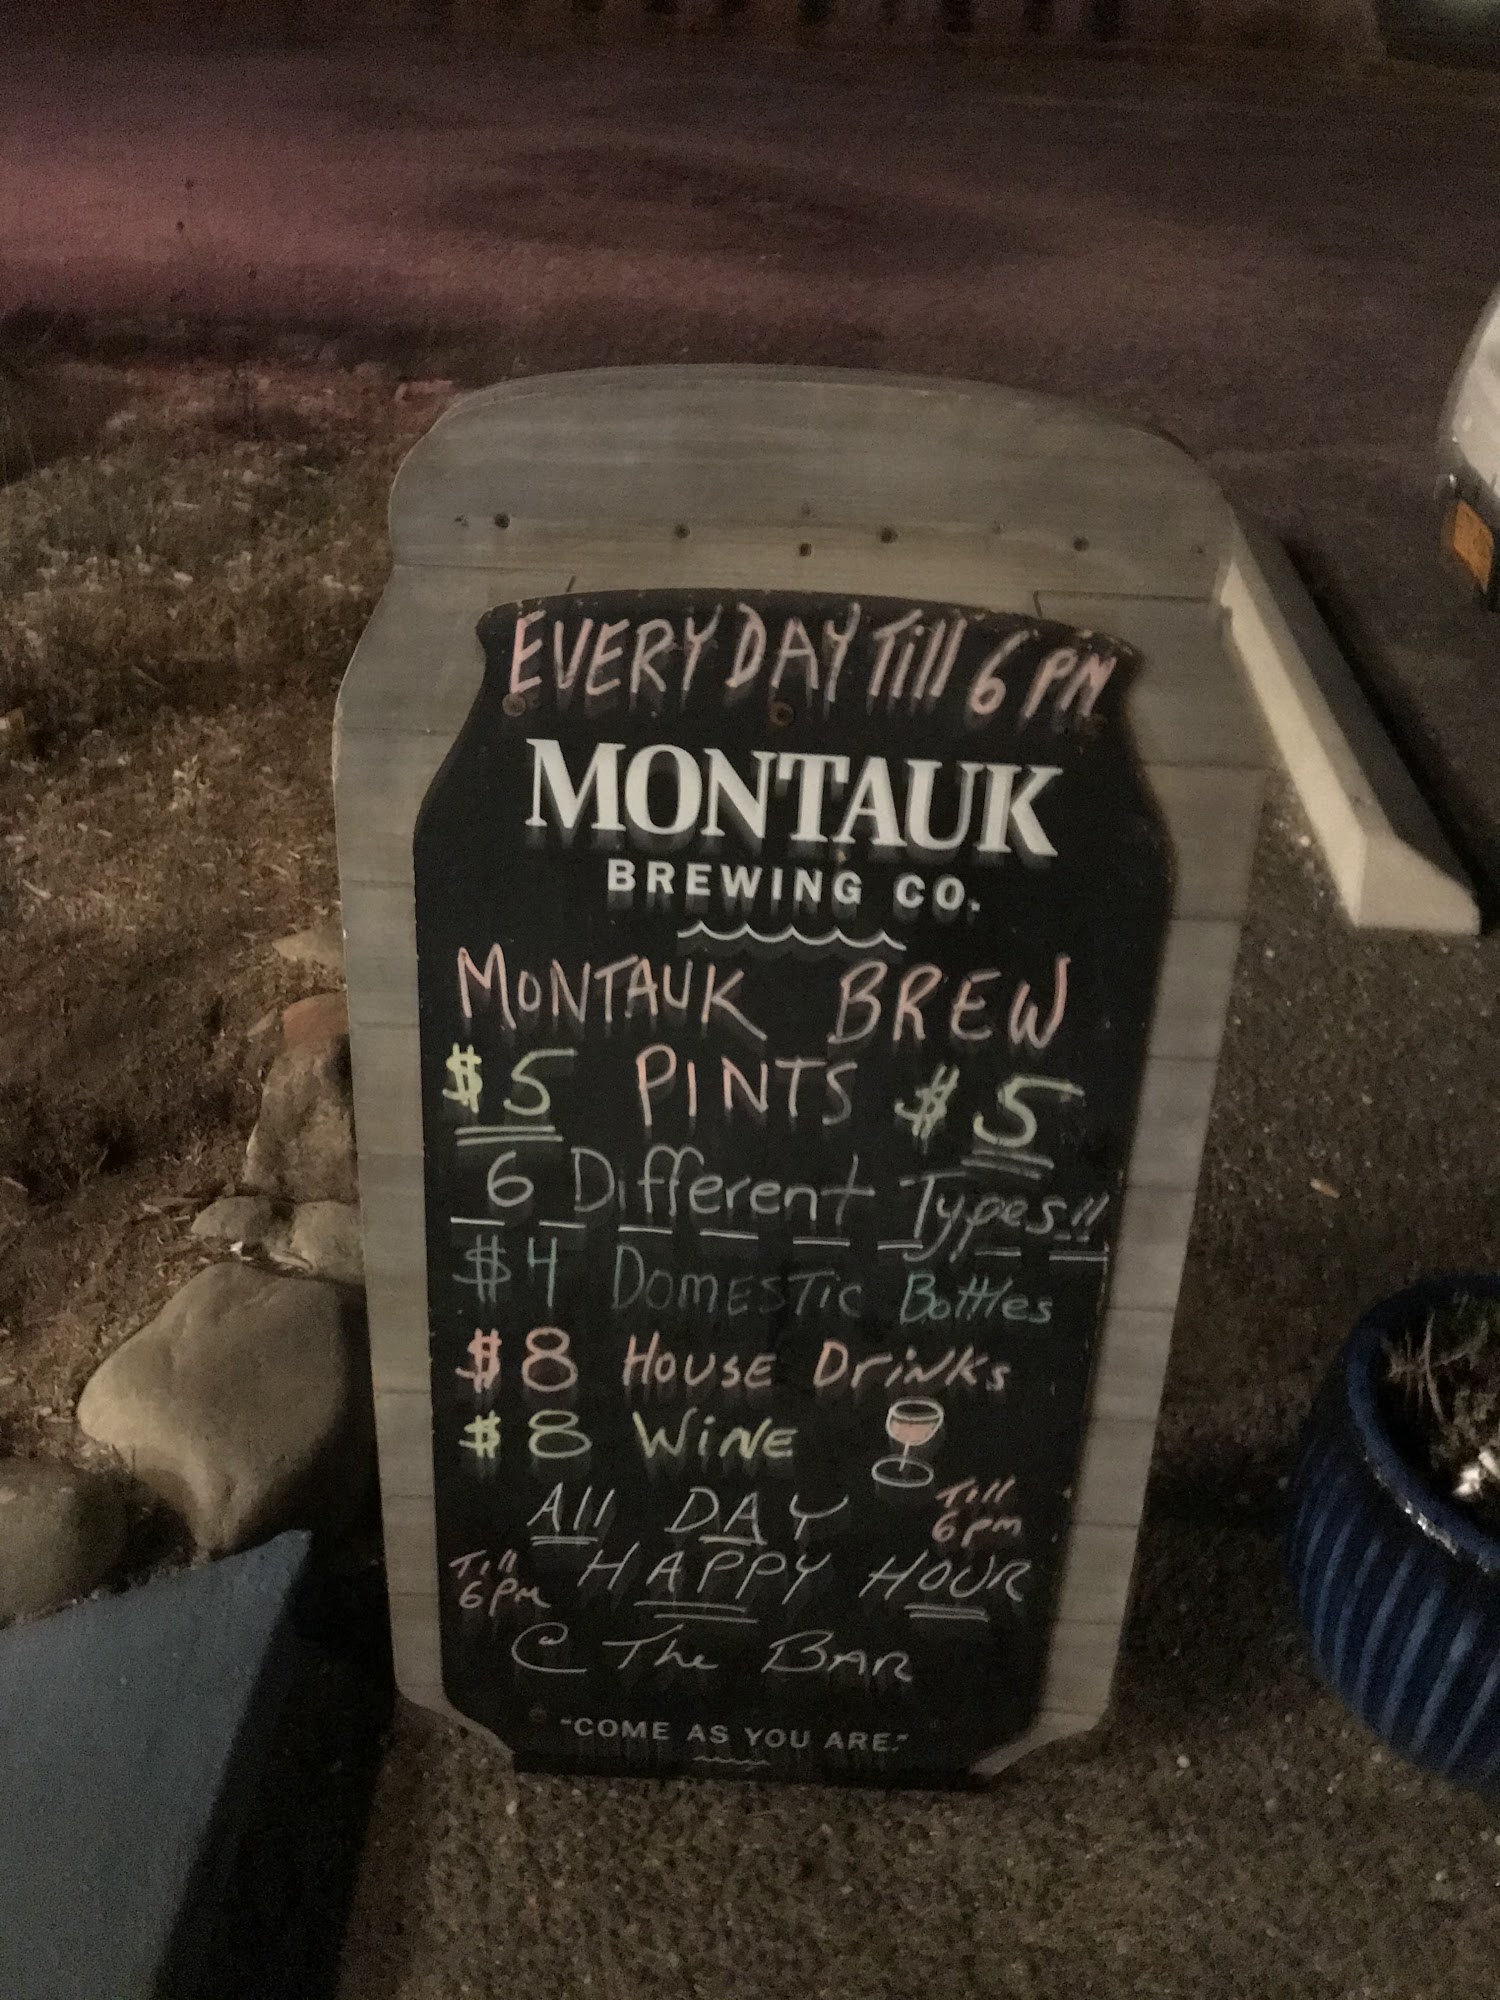 EVERY DAY Till 6 PM
MONTAUK
BREWING CO.
MONTAUK BREW
$5 PINTS $5
6 Different Types!!
$4 DOMESTIC Bottles
$8 HOUSE DrinKs
$8 WiNE
All DAY Till 6pm
Till 6PM HAPPY HOUR
@ The BAR
"COME AS YOU ARE."